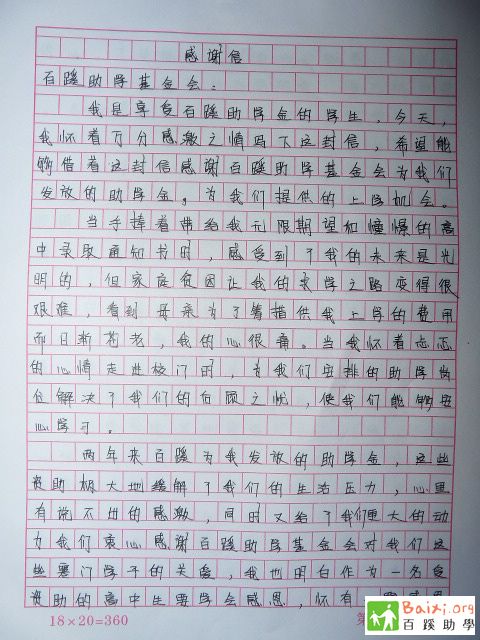 感谢信
百蹊助学基金会:
我是享受百蹊助学金的学生,今天,
我怀着万分感激之情写下这封信,希望能
够借着这封信感谢百蹊助学基金会为我们
发放的助学金。为我们提供的上学机会。
当手捧着带给我无限期望和憧憬的高
中录取通知书时,感受到了我的未来是光
明的,但家庭贫困让我的求学之路变得很
艰难,看到母亲为了筹措供我上学的费用
而日渐苍老,我的心很痛。当我怀着忐忑
的心情走进校门时,为我们安排的助学岗
位解决了我们的后顾之忧,使我们能够安
心学习。
两年来百蹊为我发放的助学金,这些
资助极大地缓解了我们的生活压力,心里
有说不出的感激,同时又给了我们更大的动
力我们衷心感谢百蹊助学基金会对我们这
些寒门学子的关爱,我也明白作为一名受
资助的高中生要学会感恩,怀有
18×20=360
第
Baixi.org
百蹊助學